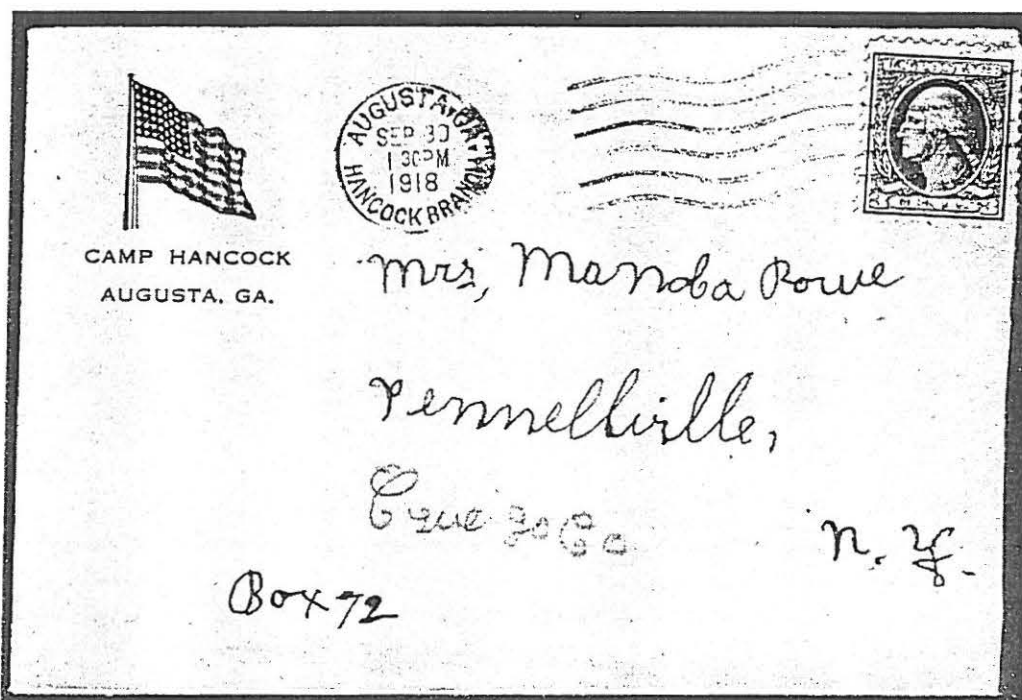 AUGUSTA, GA.
SEP 30
1 30 PM
1918
HANCOCK BRANCH
U.S. POSTAGE
CAMP HANCOCK
AUGUSTA, GA.
Mrs, Manoba Rowe
Pennellville,
Oswego Co
N. Y.
Box 72